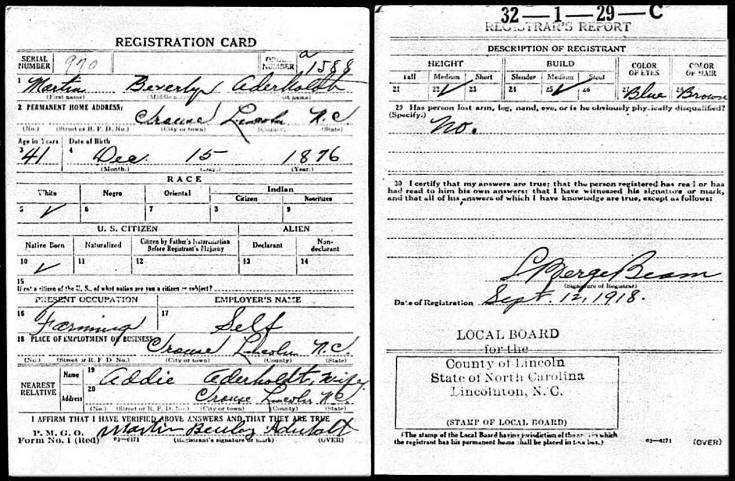 REGISTRATION CARD
SERIAL NUMBER 970
ORDER NUMBER a 1588
1 Martin Beverly Aderholdt
(First name) (Middle name) (Last name)
2 PERMANENT HOME ADDRESS:
Crouse Lincoln N.C.
(No.) (Street or R. F. D. No.) (City or town) (County) (State)
Age in Years Date of Birth
3 41 4 Dec. 15 1876
(Month.) (Day.) (Year.)
RACE
White Negro Oriental Indian
Citizen Noncitizen
5 ✓ 6 7 8 9
U. S. CITIZEN ALIEN
Native Born Naturalized Citizen by Father's Naturalization Before Registrant's Majority Declarant Non-declarant
10 ✓ 11 12 13 14
15
If not a citizen of the U. S., of what nation are you a citizen or subject?
PRESENT OCCUPATION EMPLOYER'S NAME
16 Farming 17 Self
18 PLACE OF EMPLOYMENT OR BUSINESS:
Crouse Lincoln N.C.
(No.) (Street or R. F. D. No.) (City or town) (County) (State)
NEAREST RELATIVE
Name 19 Addie Aderholdt, Wife
Address 20 Crouse Lincoln N.C.
(No.) (Street or R. F. D. No.) (City or town) (County) (State)
I AFFIRM THAT I HAVE VERIFIED ABOVE ANSWERS AND THAT THEY ARE TRUE
P. M. G. O.
Form No. 1 (Red) 03—6171 Martin Beverley Aderholt
(Registrant's signature or mark) (OVER)
32—1—29—C
REGISTRAR'S REPORT
DESCRIPTION OF REGISTRANT
HEIGHT BUILD COLOR OF EYES COLOR OF HAIR
Tall Medium Short Slender Medium Stout
21 22 ✓ 23 24 25 ✓ 26 27 Blue 28 Brown
29 Has person lost arm, leg, hand, eye, or is he obviously physically disqualified?
(Specify.)
No.
30 I certify that my answers are true; that the person registered has read or has
had read to him his own answers; that I have witnessed his signature or mark,
and that all of his answers of which I have knowledge are true, except as follows:
S Berge Beam
(Signature of Registrar)
Date of Registration Sept. 12, 1918.
LOCAL BOARD
for the
County of Lincoln
State of North Carolina
Lincolnton, N. C.
(STAMP OF LOCAL BOARD)
(The stamp of the Local Board having jurisdiction of the area in which
the registrant has his permanent home shall be placed in this box.)
03—6171 (OVER)